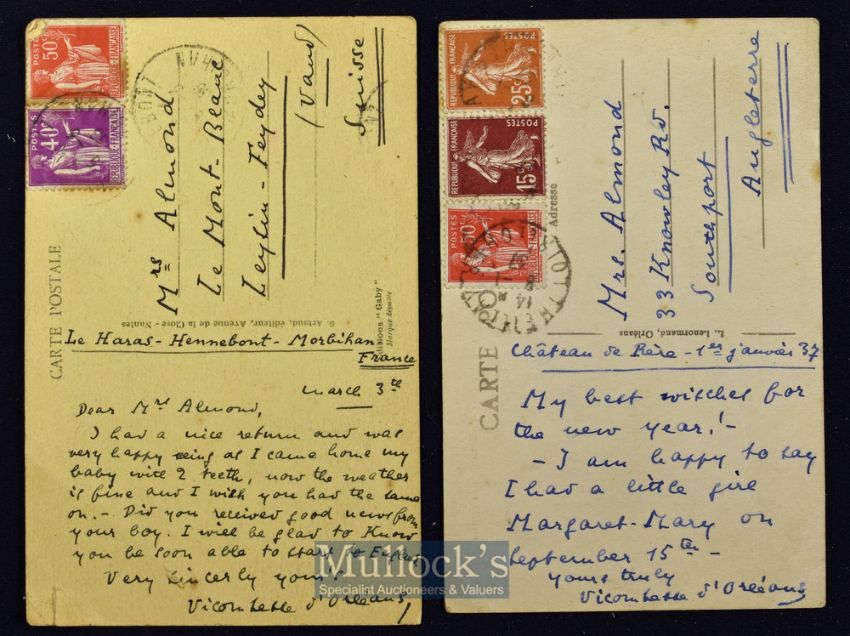 50c
REPUBLIQUE FRANÇAISE
POSTES
40c
CARTE POSTALE
G. Artaud, éditeur, Avenue de la Close - Nantes
"Gaby"
Marque déposée
Mrs Almond
Le Mont-Beanc
Leysin-Feydey
(Vaud)
Suisse
Le Haras-Hennebont-Morbihan
France
March 3th
Dear Mrs Almond,
I had a nice return and was
very happy seing as I came home my
baby with 2 teeth, now the weather
is fine and I wish you had the same
on.- Did you received good news from
your boy. I will be glad to know
you be soon able to start to
Very sincerly yours
Vicomtesse d'Orléans
POSTES
25c
REPUBLIQUE FRANÇAISE
POSTES
15c
REPUBLIQUE FRANÇAISE
50c
CARTE
Adresse
L. Lenormand, Orléans
Mrs. Almond
33 Knowley Rd.
Southport
Angleterre
Château de Rère - 1er janvier 37
My best witches for
the new year!-
- I am happy to say
I had a little girl
Margaret-Mary on
September 15th -
yours truly
Vicomtesse d'Orléans
Mullock's
Specialist Auctioneers & Valuers